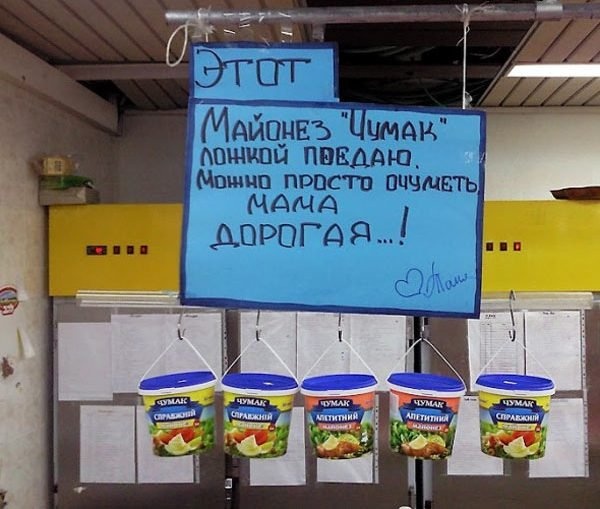 ЭТОТ
МАЙОНЕЗ "ЧУМАК"
ЛОЖКОЙ ПОЕДАЮ,
МОЖНО ПРОСТО ОЧУМЕТЬ
МАМА
ДОРОГАЯ...!
ЧУМАК
СПРАВЖНІЙ
ЧУМАК
СПРАВЖНІЙ
ЧУМАК
АПЕТИТНИЙ
МАЙОНЕЗ
ЧУМАК
АПЕТИТНИЙ
МАЙОНЕЗ
ЧУМАК
СПРАВЖНІЙ